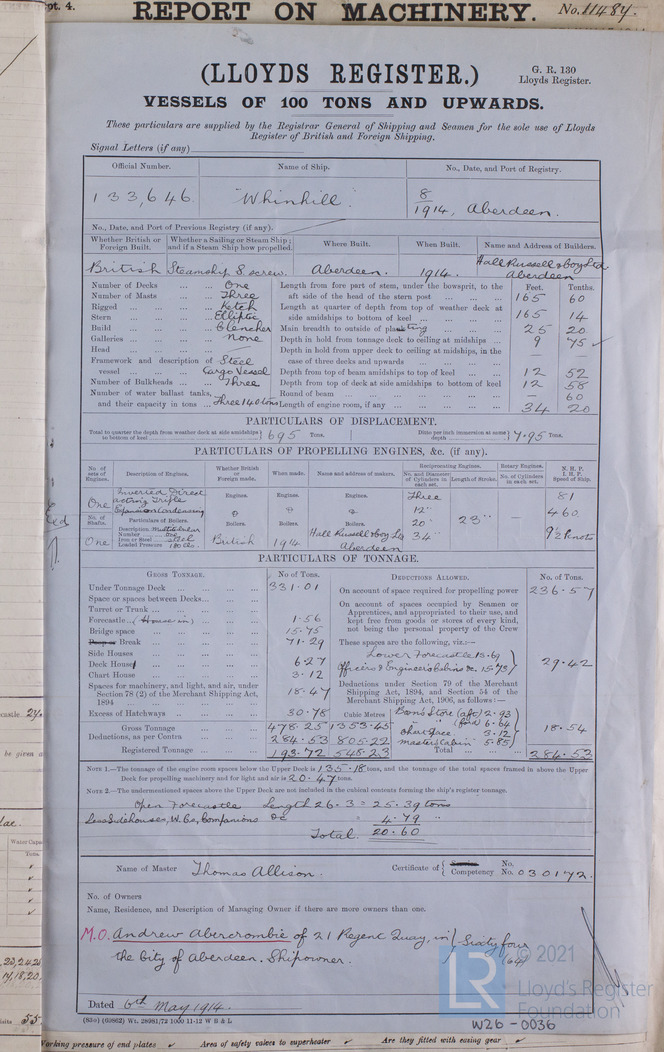 pt. 4.
REPORT ON MACHINERY. No. 11484.
(LLOYDS REGISTER.)
G. R. 130
Lloyds Register.
VESSELS OF 100 TONS AND UPWARDS.
These particulars are supplied by the Registrar General of Shipping and Seamen for the sole use of Lloyds
Register of British and Foreign Shipping.
Signal Letters (if any)
Official Number. Name of Ship. No., Date, and Port of Registry.
133,646. "Whinhill". 8/1914, Aberdeen.
No., Date, and Port of Previous Registry (if any).
Whether British or Foreign Built. Whether a Sailing or Steam Ship; and if a Steam Ship how propelled. Where Built. When Built. Name and Address of Builders.
British Steamship S screw. Aberdeen. 1914. Hall Russell & Coy Ltd
Aberdeen
Number of Decks ... ... One
Number of Masts ... ... Three
Rigged ... ... Ketch
Stern ... ... Elliptic
Build ... ... Clencher
Galleries ... ... None
Head ... ... —
Framework and description of vessel ... ... Steel
Cargo Vessel
Number of Bulkheads ... Three
Number of water ballast tanks, and their capacity in tons ... Three 140 tons
Feet. Tenths.
Length from fore part of stem, under the bowsprit, to the aft side of the head of the stern post ... 165 60
Length at quarter of depth from top of weather deck at side amidships to bottom of keel ... 165 14
Main breadth to outside of plating 25 20
Depth in hold from tonnage deck to ceiling at midships ... 9 75
Depth in hold from upper deck to ceiling at midships, in the case of three decks and upwards — —
Depth from top of beam amidships to top of keel ... 12 52
Depth from top of deck at side amidships to bottom of keel 12 58
Round of beam ... — 60
Length of engine room, if any ... 34 20
PARTICULARS OF DISPLACEMENT.
Total to quarter the depth from weather deck at side amidships to bottom of keel } 695 Tons. Ditto per inch immersion at same depth } 7.95 Tons.
PARTICULARS OF PROPELLING ENGINES, &c. (if any).
No. of sets of Engines. Description of Engines. Whether British or Foreign made. When made. Name and address of makers. Reciprocating Engines. Rotary Engines. N. H. P. I. H. P. Speed of Ship.
No. and Diameter of Cylinders in each set. Length of Stroke. No. of Cylinders in each set.
One Inverted Direct acting Triple Expansion Condensing Engines. Engines. Engines. Three 81
12" 20" 34" 23" — 460 9½ Knots
No. of Shafts. Particulars of Boilers. Boilers. Boilers. Boilers.
One Description Multitubular
Number one
Iron or Steel Steel
Loaded Pressure 180 lbs. British 1914 Hall Russell & Coy Ld
Aberdeen
PARTICULARS OF TONNAGE.
GROSS TONNAGE. No. of Tons.
Under Tonnage Deck ... 331.01
Space or spaces between Decks...
Turret or Trunk ...
Forecastle (House in) 1.56
Bridge space ... 15.75
Poop or Break ... 71.29
Side Houses ...
Deck House 6.27
Chart House ... 3.12
Spaces for machinery, and light, and air, under Section 78 (2) of the Merchant Shipping Act, 1894 18.47
Excess of Hatchways ... 30.78 Cubic Metres
Gross Tonnage ... 478.25 1353.45
Deductions, as per Contra ... 284.53 805.22
Registered Tonnage ... 193.72 548.23
DEDUCTIONS ALLOWED. No. of Tons.
On account of space required for propelling power 236.57
On account of spaces occupied by Seamen or Apprentices, and appropriated to their use, and kept free from goods or stores of every kind, not being the personal property of the Crew
These spaces are the following, viz.:—
Lower Forecastle 13.69
Officers & Engineers Cabins &c. 15.73 } 29.42
Deductions under Section 79 of the Merchant Shipping Act, 1894, and Section 54 of the Merchant Shipping Act, 1906, as follows:—
Bosn's Store (aft) 2.93
" " (ford) 6.64
Chart space. 3.12
Master's Cabin 5.85 } 18.54
Total ... 284.53
NOTE 1.—The tonnage of the engine room spaces below the Upper Deck is 135.18 tons, and the tonnage of the total spaces framed in above the Upper
Deck for propelling machinery and for light and air is 20.47 tons.
NOTE 2.—The undermentioned spaces above the Upper Deck are not included in the cubical contents forming the ship's register tonnage.
Open Forecastle Length 26.3 = 25.39 tons
Less Sidehouses, W.Cs, Companions &c " 4.79 "
Total. 20.60
Name of Master Thomas Allison. Certificate of { Service Competency No. No. 030172.
No. of Owners
Name, Residence, and Description of Managing Owner if there are more owners than one.
M.O. Andrew Abercrombie of 21 Regent Quay, in } Sixty four
the City of Aberdeen. Shipowner. (64)
Dated 6th May 1914.
(830) (69862) Wt. 28981/72 1000 11-12 W B & L
LR
© 2021
Lloyd's Register
Foundation
W26-0036
castle
be given a
Water Capa
Tons.
Working pressure of end plates Area of safety valves to superheater Are they fitted with easing gear